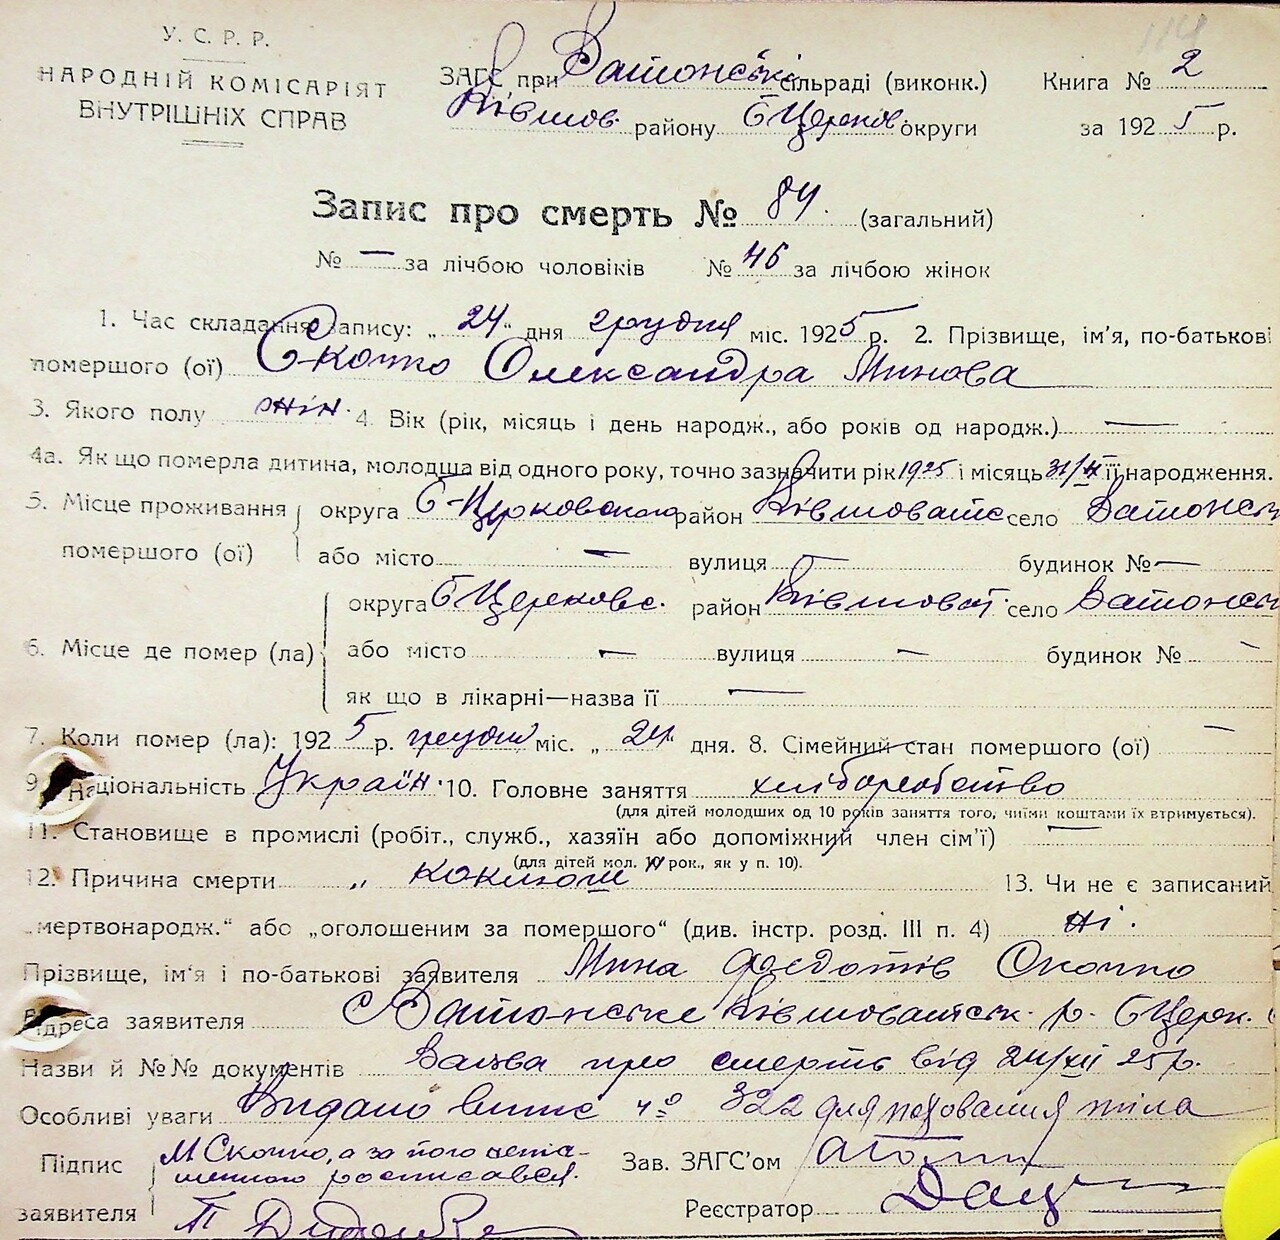 114
У. С. Р. Р.
НАРОДНІЙ КОМІСАРІЯТ
ВНУТРІШНІХ СПРАВ
ЗАГС при Ватонські сільраді (виконк.)
Ківшов. району Б Церков. округи
Книга № 2
за 1925 р.
Запис про смерть № 84. (загальний)
№ — за лічбою чоловіків № 46 за лічбою жінок
1. Час складання запису: „24“ дня грудня міс. 1925 р. 2. Прізвище, ім'я, по-батькові
помершого (ої) Скочко Олександра Минова
3. Якого полу жін. 4. Вік (рік, місяць і день народж., або років од народж.) —
4а. Як що померла дитина, молодша від одного року, точно зазначити рік 1925 і місяць її народження.
5. Місце проживання помершого (ої) округа Б-Церковського район Ківшоватс село Ватонськ
або місто — вулиця — будинок № —
6. Місце де помер (ла) округа Б Церковс. район Ківшоват. село Ватонськ
або місто — вулиця — будинок № —
як що в лікарні—назва її —
7. Коли помер (ла): 1925 р. грудня міс. „24“ дня. 8. Сімейний стан помершого (ої) —
9. Національність Україн. 10. Головне заняття хліборобство
(для дітей молодших од 10 років заняття того, чиїми коштами їх втримується).
11. Становище в промислі (робіт., служб., хазяїн або допоміжний член сім'ї) —
(для дітей мол. 10 рок., як у п. 10).
12. Причина смерти „ коклюш 13. Чи не є записаний
„мертвонародж.“ або „оголошеним за помершого“ (див. інстр. розд. III п. 4) ні.
Прізвище, ім'я і по-батькові заявителя Мина Федотів Скочко
Адреса заявителя с Ватонське Ківшоватськ. р. Б Церк.
Назви й №№ документів Заява про смерть від 24/XII 25 р.
Особливі уваги Видано випис ч⁰ 322 для поховання тіла
Підпис заявителя М Скочко, а за його негра-
мотного росписався.
П Диденко
Зав. ЗАГС'ом
Реєстратор Дац